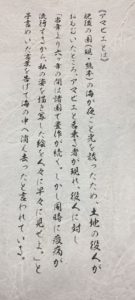 《アマビエとは》
肥後の国(現・熊本)の海が夜ごと光を放ったため、土地の役人が
おもむいたところ、アマビエと名乗る者が現れ、役人に対し
「当年より六ヶ年の間は諸国で豊作が続く。しかし同時に疫病が
流行するから、私の姿を描き写した絵を人々に早々に見せよ。」と
予言めいた言葉を告げて海の中へ消え去ったと言われている。